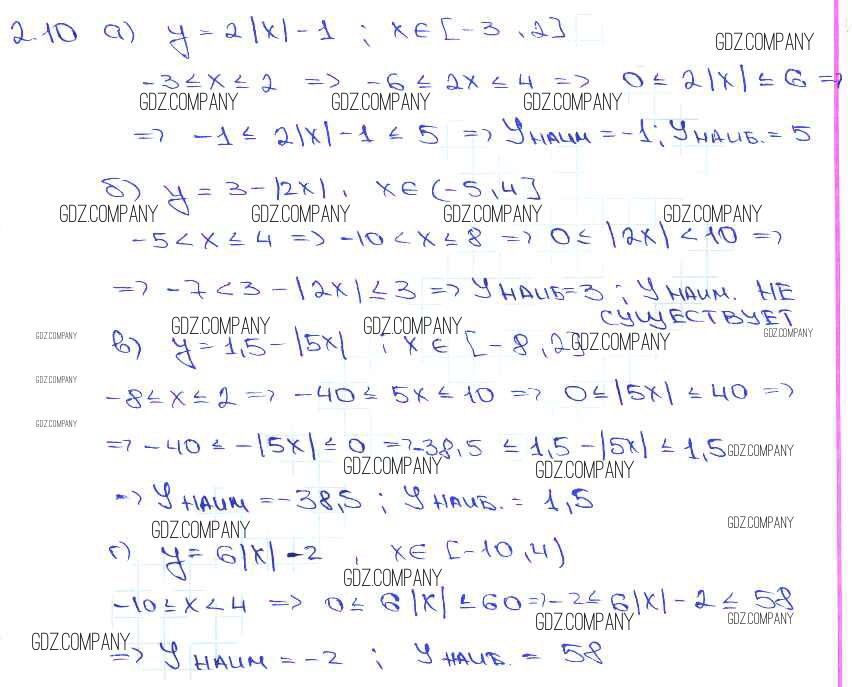 2.10 а) y = 2|x| - 1 ; x ∈ [-3, 2]
GDZ.COMPANY
-3 ≤ x ≤ 2 => -6 ≤ 2x ≤ 4 => 0 ≤ 2|x| ≤ 6 =>
GDZ.COMPANY GDZ.COMPANY GDZ.COMPANY
=> -1 ≤ 2|x| - 1 ≤ 5 => Yнаим = -1; Yнаиб. = 5
б) y = 3 - |2x|, x ∈ (-5, 4]
GDZ.COMPANY GDZ.COMPANY GDZ.COMPANY GDZ.COMPANY
-5 < x ≤ 4 => -10 < x ≤ 8 => 0 ≤ |2x| < 10 =>
=> -7 < 3 - |2x| ≤ 3 => Yнаиб = 3 ; Yнаим. НЕ
СУЩЕСТВУЕТ
GDZ.COMPANY GDZ.COMPANY
GDZ.COMPANY GDZ.COMPANY
в) y = 1,5 - |5x| ; x ∈ [-8, 2]
GDZ.COMPANY
GDZ.COMPANY
-8 ≤ x ≤ 2 => -40 ≤ 5x ≤ 10 => 0 ≤ |5x| ≤ 40 =>
GDZ.COMPANY
=> -40 ≤ -|5x| ≤ 0 => -38,5 ≤ 1,5 - |5x| ≤ 1,5
GDZ.COMPANY
GDZ.COMPANY GDZ.COMPANY
=> Yнаим = -38,5 ; Yнаиб. = 1,5
GDZ.COMPANY GDZ.COMPANY
г) y = 6|x| - 2 , x ∈ [-10, 4)
GDZ.COMPANY
-10 ≤ x < 4 => 0 ≤ 6|x| ≤ 60 => -2 ≤ 6|x| - 2 ≤ 58
GDZ.COMPANY GDZ.COMPANY
GDZ.COMPANY
=> Yнаим = -2 ; Yнаиб. = 58